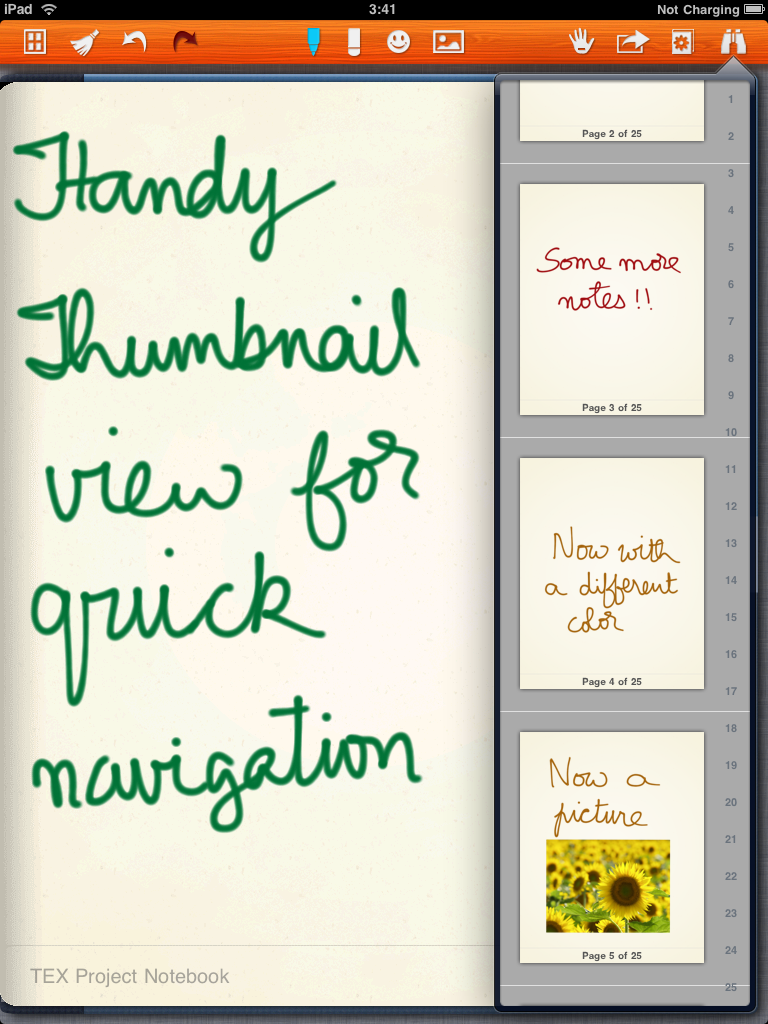 iPad
3:41
Not Charging
Handy
Thumbnail
view for
quick
navigation
TEX Project Notebook
Page 2 of 25
Some more
notes !!
Page 3 of 25
Now with
a different
color
Page 4 of 25
Now a
picture
Page 5 of 25
1
2
3
4
5
6
7
8
9
10
11
12
13
14
15
16
17
18
19
20
21
22
23
24
25